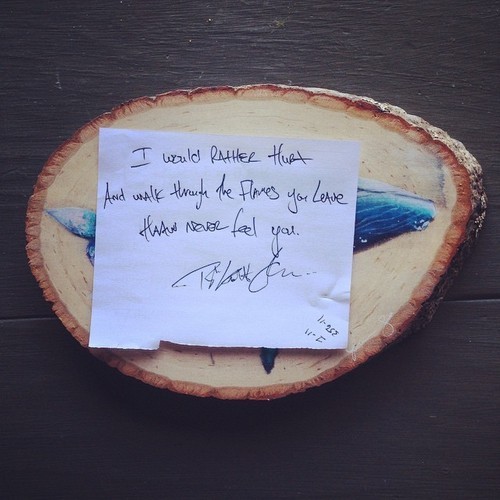 I would Rather Hurt
And walk through the Flames you Leave
Than never feel you.